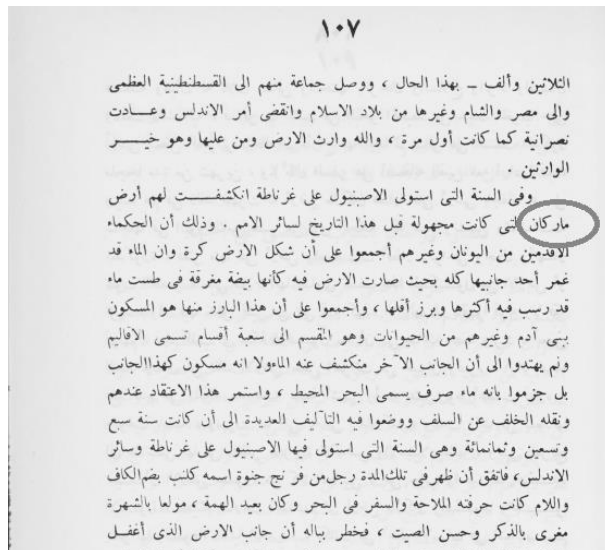 ١٠٧
الثلاثين وألف ــ بهذا الحال ، ووصل جماعة منهم الى القسطنطينية العظمى
والى مصر والشام وغيرها من بلاد الاسلام وانقضى أمر الاندلس وعــادت
نصرانية كما كانت أول مرة ، والله وارث الارض ومن عليها وهو خيـــر
الوارثين .
وفى السنة التى استولى الاصبنيول على غرناطة انكشفــــت لهم أرض
ماركان التى كانت مجهولة قبل هذا التاريخ لسائر الامم . وذلك أن الحكماء
الاقدمين من اليونان وغيرهم أجمعوا على أن شكل الارض كرة وان الماء قد
غمر أحد جانبيها كله بحيث صارت الارض فيه كأنها بيضة مغرقة فى طست ماء
قد رسب فيه أكثرها وبرز أقلها ، وأجمعوا على أن هذا البارز منها هو المسكون
ببنى آدم وغيرهم من الحيوانات وهو المقسم الى سبعة أقسام تسمى الاقاليم
ولم يهتدوا الى أن الجانب الآخر منكشف عنه الماء ولا انه مسكون كهذا الجانب
بل جزموا بانه ماء صرف يسمى البحر المحيط ، واستمر هذا الاعتقاد عندهم
ونقله الخلف عن السلف ووضعوا فيه التآليف العديدة الى أن كانت سنة سبع
وتسعين وثمانمائة وهى السنة التى استولى فيها الاصبنيول على غرناطة وسائر
الاندلس، فاتفق أن ظهر فى تلك المدة رجل من فرنج جنوة اسمه كلنب بضم الكاف
واللام كانت حرفته الملاحة والسفر فى البحر وكان بعيد الهمة ، مولعا بالشهرة
مغرى بالذكر وحسن الصيت ، فخطر بباله أن جانب الارض الذى أغفــل